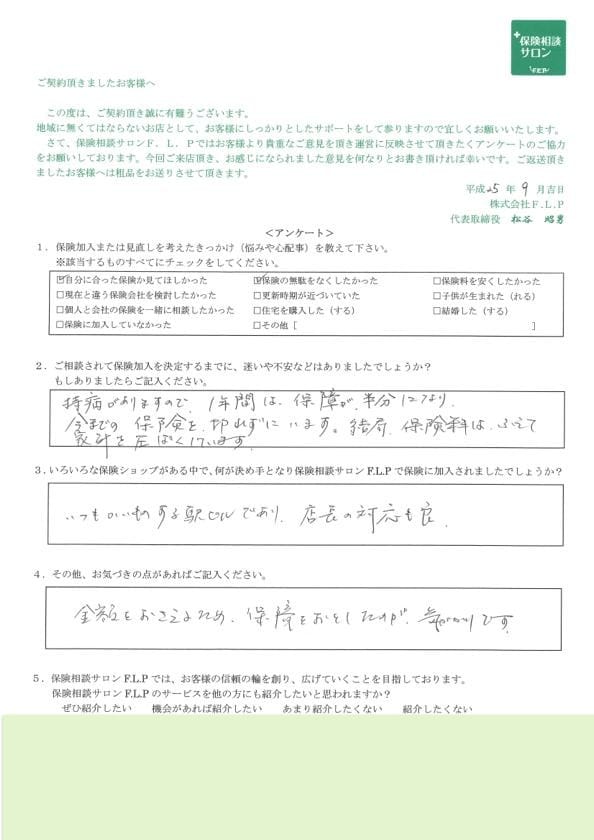 +保険相談
サロン
F.L.P
ご契約頂きましたお客様へ
この度は、ご契約頂き誠に有難うございます。
地域に無くてはならないお店として、お客様にしっかりとしたサポートをして参りますので宜しくお願いいたします。
さて、保険相談サロンF．L．Pではお客様より貴重なご意見を頂き運営に反映させて頂きたくアンケートのご協力
をお願いしております。今回ご来店頂き、お感じになられました意見を何なりとお書き頂ければ幸いです。ご返送頂き
ましたお客様へは粗品をお送りさせて頂きます。
平成25年9月吉日
株式会社F.L.P
代表取締役 松谷 昭男
＜アンケート＞
1．保険加入または見直しを考えたきっかけ（悩みや心配事）を教えて下さい。
※該当するものすべてにチェックをしてください。
☑自分に合った保険か見てほしかった ☑保険の無駄をなくしたかった □保険料を安くしたかった
□現在と違う保険会社を検討したかった □更新時期が近づいていた □子供が生まれた（れる）
□個人と会社の保険を一緒に相談したかった □住宅を購入した（する） □結婚した（する）
□保険に加入していなかった □その他［ ］
2．ご相談されて保険加入を決定するまでに、迷いや不安などはありましたでしょうか？
もしありましたらご記入ください。
持病がありますので、1年間は、保障が、半分になり、
今までの保険を、切れずにいます。結局、保険料は、ふえて
家計を圧ぱくしています。
3．いろいろな保険ショップがある中で、何が決め手となり保険相談サロンF.L.Pで保険に加入されましたでしょうか？
いつもかいものする駅ビルであり、店長の対応も良
4．その他、お気づきの点があればご記入ください。
金額をおさえるため、保障をおとしたのが、気がかりです。
5．保険相談サロンF.L.Pでは、お客様の信頼の輪を創り、広げていくことを目指しております。
保険相談サロンF.L.Pのサービスを他の方にも紹介したいと思われますか？
ぜひ紹介したい 機会があれば紹介したい あまり紹介したくない 紹介したくない